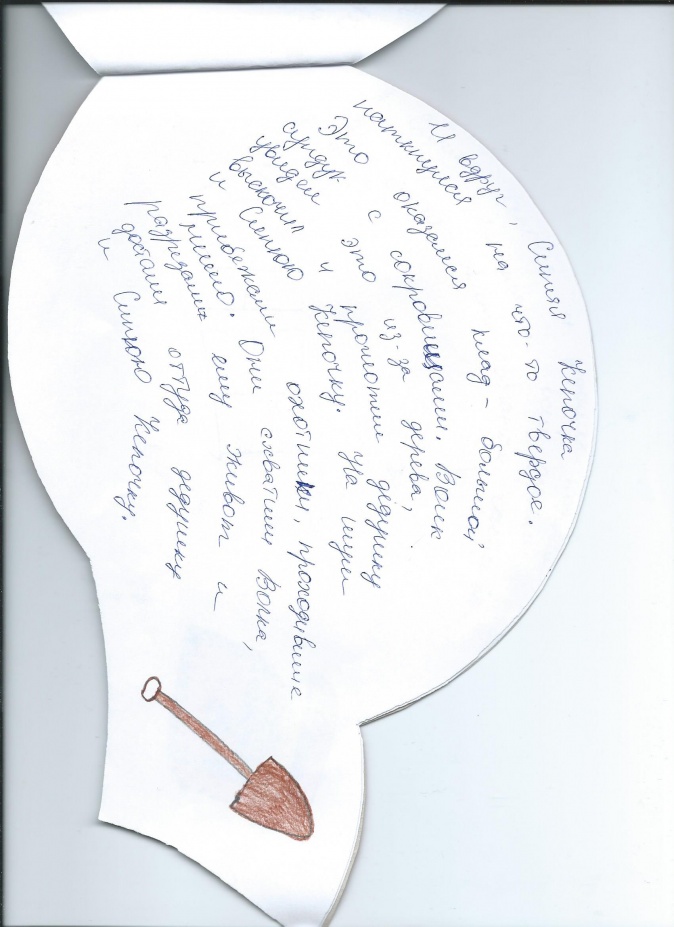 И вдруг, Синяя Кепочка
наткнулся на что-то твёрдое.
Это оказался клад - большой
сундук с сокровищами. Волк
увидел это из-за дерева,
выскочил и проглотил дедушку
и Синюю Кепочку. На шум
прибежали охотники, проходившие
мимо. Они схватили Волка,
разрезали ему живот и
достали оттуда дедушку
и Синюю Кепочку.